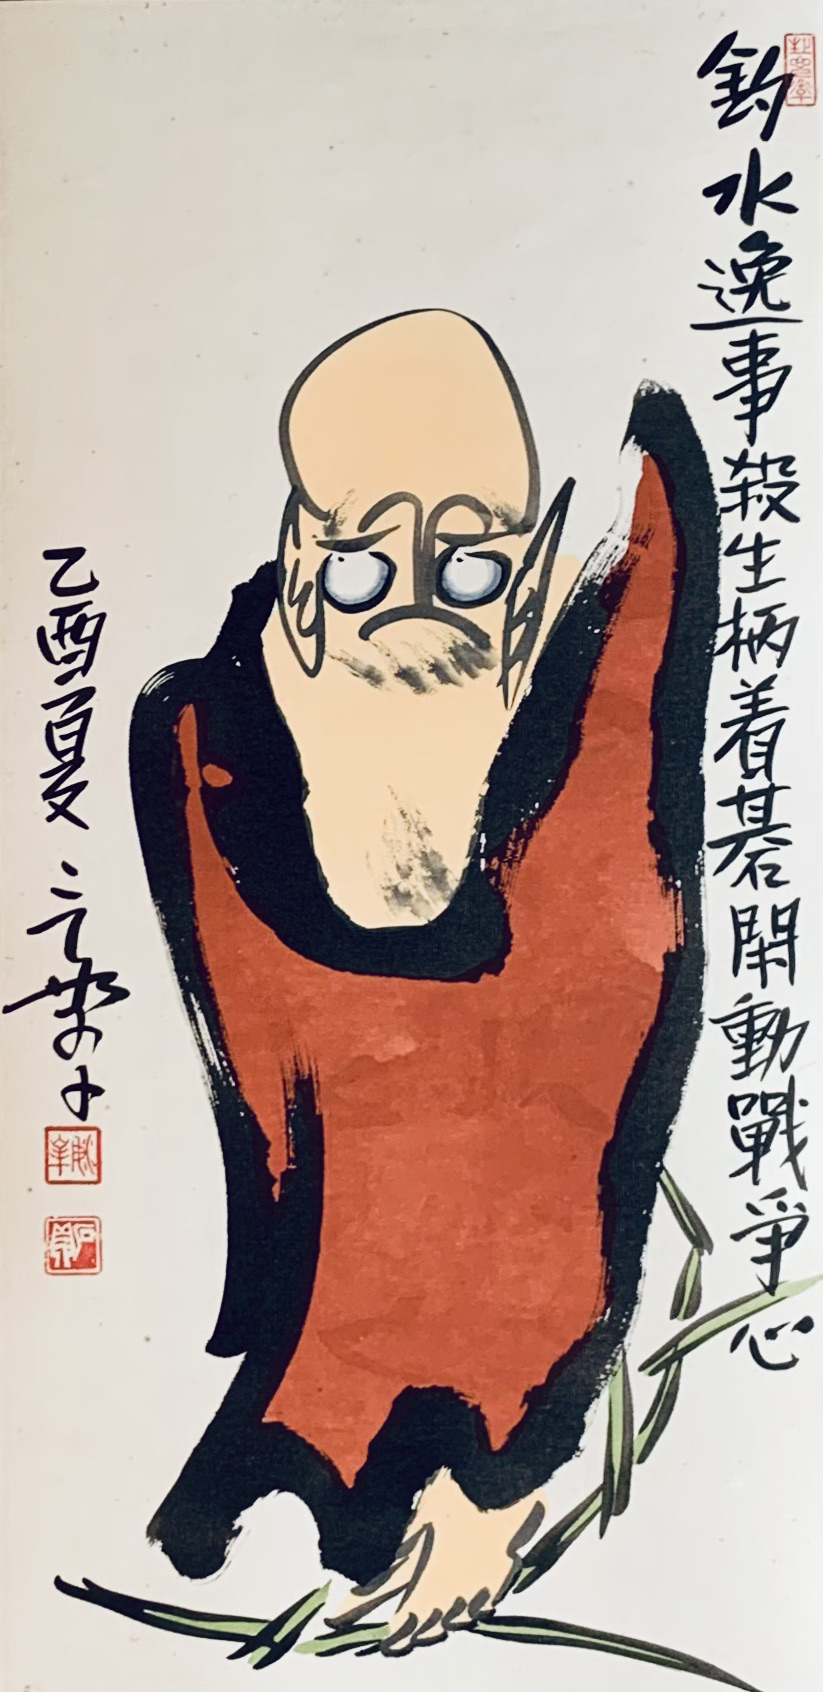 釣水逸事殺生柄着棊閑動戰爭心
乙酉夏